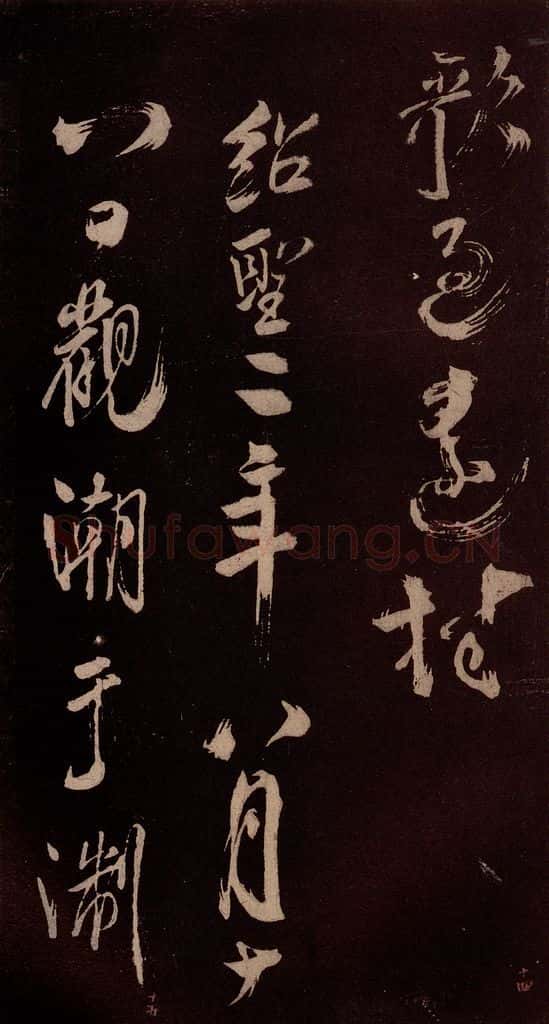 歌過遠村
紹聖二年八月十
八日觀潮于淛
十四
十五
Shufawang.CN